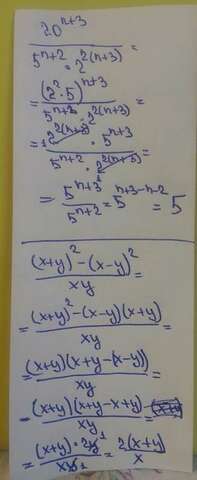 20^(n+3) / (5^(n+2) · 2^(2(n+3))) =
= (2² · 5)^(n+3) / (5^(n+2) · 2^(2(n+3))) =
= 2^(2(n+3)) · 5^(n+3) / (5^(n+2) · 2^(2(n+3))) =
= 5^(n+3) / 5^(n+2) = 5^(n+3-n-2) = 5
((x+y)² - (x-y)²) / xy =
= ((x+y)² - (x-y)(x+y)) / xy =
= (x+y)(x+y-(x-y)) / xy =
= (x+y)(x+y-x+y) / xy =
= (x+y) · 2y / xy = 2(x+y) / x